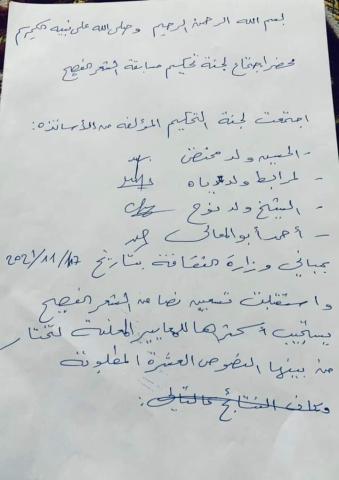 بسم الله الرحمن الرحيم وصلى الله على نبيه الكريم
محضر اجتماع لجنة تحكيم مسابقة الشعر الفصيح
اجتمعت لجنة التحكيم المؤلفة من الأساتذة:
- الحسين ولد محنض
- لمرابط ولد دياه
- الشيخ ولد نوح
- أحمد أبو المعالي
بمباني وزارة الثقافة بتاريخ 2021/11/17
واستقبلت تسعين نصا من الشعر الفصيح
يستجيب أكثرها للمعايير المعلنة لتختار
من بينها النصوص العشرة المطلوبة
النتائج كالتالي: